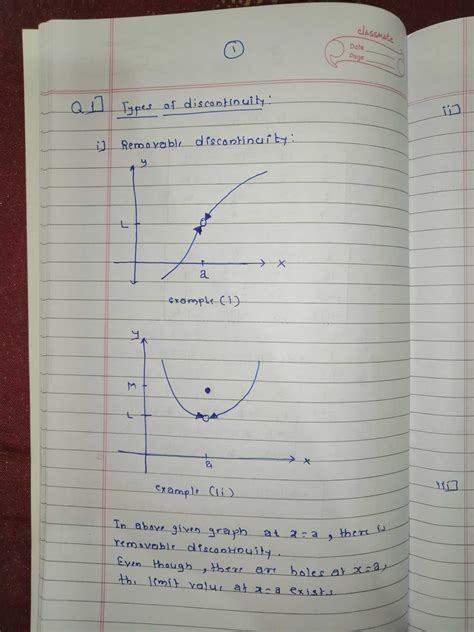 1
classmate
Date
Page
Q.1] Types of discontinuity:
i] Removable discontinuity:
y
L
a
x
example (i.)
y
M
L
a
x
example (ii)
In above given graph at x=a, there is
removable discontinuity.
Even though, there are holes at x=a,
the limit value at x=a exists.
ii]
iii]